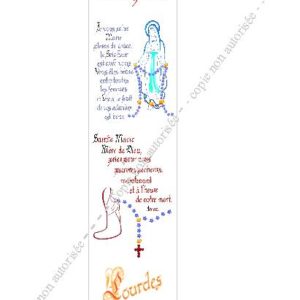 Je vous salue
Marie
pleine de grâce,
le Seigneur
est avec vous
Vous êtes bénie
entre toutes
les femmes
et Jésus, le fruit
de vos entrailles
est béni.
Sainte Marie
Mère de Dieu,
priez pour nous
pauvres pécheurs,
maintenant
et à l'heure
de notre mort.
Amen.
Lourdes
copie non autorisée
copie non autorisée